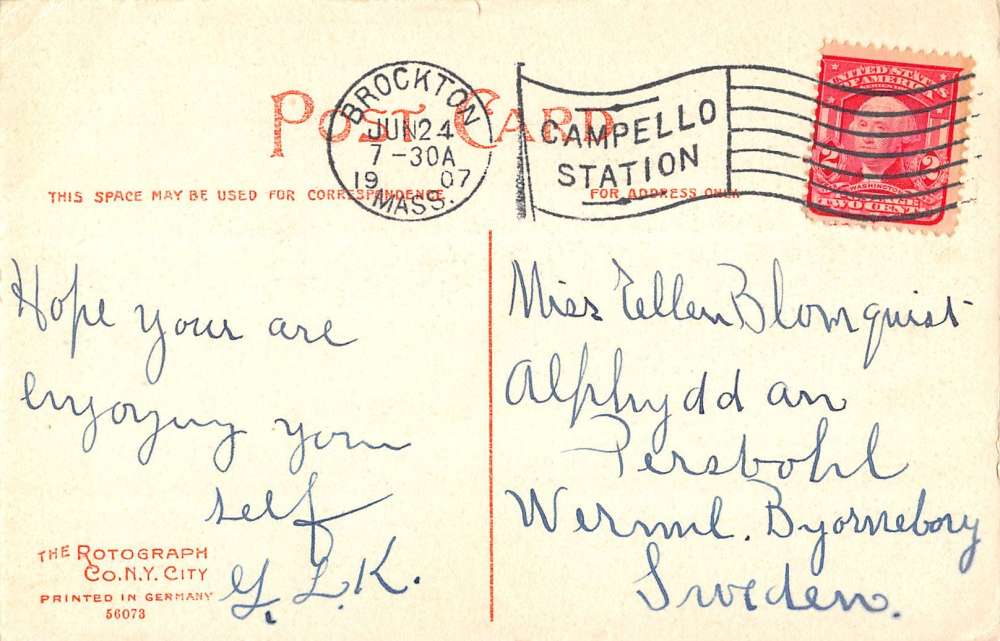 POST CARD
BROCKTON
JUN 24
7-30A
19 07
MASS.
CAMPELLO
STATION
UNITED STATES
OF AMERICA
2 2
WASHINGTON
TWO CENTS
THIS SPACE MAY BE USED FOR CORRESPONDENCE
FOR ADDRESS ONLY
Hope your are
enjoying your
self
G. L. K.
Miss Eellen Blomquist
Alphyddan
Persbohl
Werml. Byorneborg
Sweden.
THE ROTOGRAPH
CO. N.Y. CITY
PRINTED IN GERMANY
56073